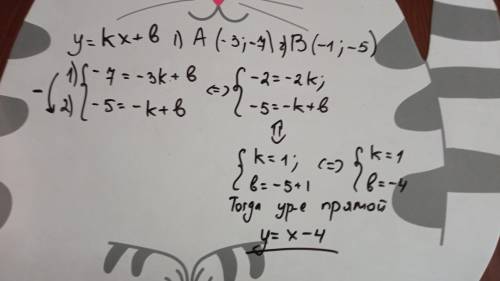 y = kx + b 1) A (-3; -7) 2) B (-1; -5)
- 1) { -7 = -3k + b <=> { -2 = -2k;
2) { -5 = -k + b { -5 = -k + b
⇕
{ k = 1; <=> { k = 1
{ b = -5 + 1 { b = -4
Тогда ур-е прямой
y = x - 4